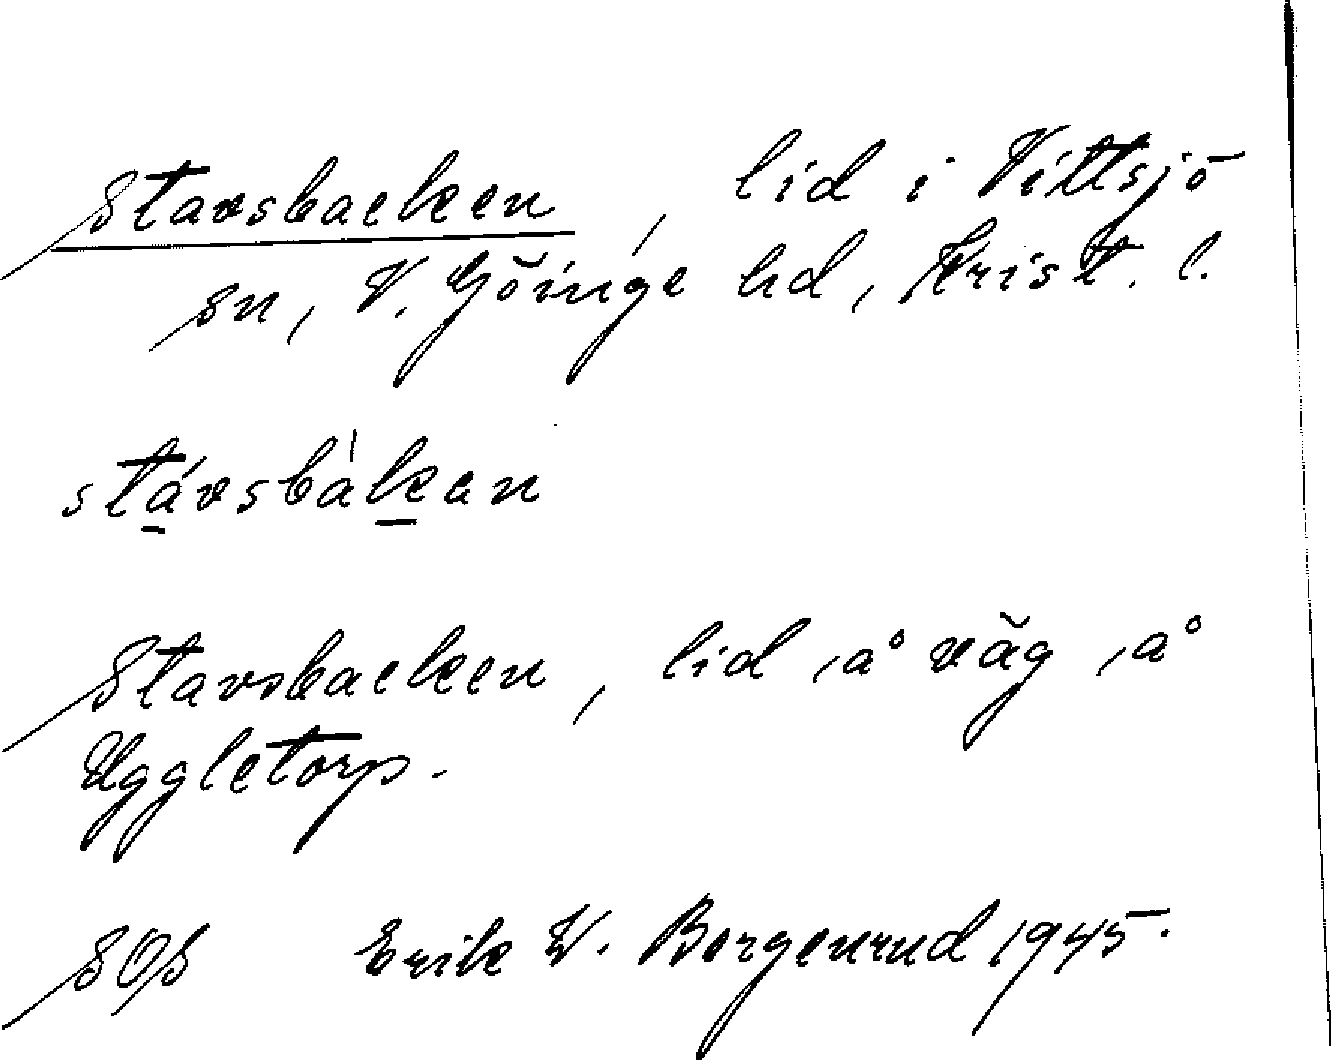 Stavsbacken, lid i Vittsjö
sn, V. Göinge hd, Krist. l.
stávsbàkan
Stavsbacken, lid å väg å
Uggletorp.
SOS Erik W. Borgenrud 1945.